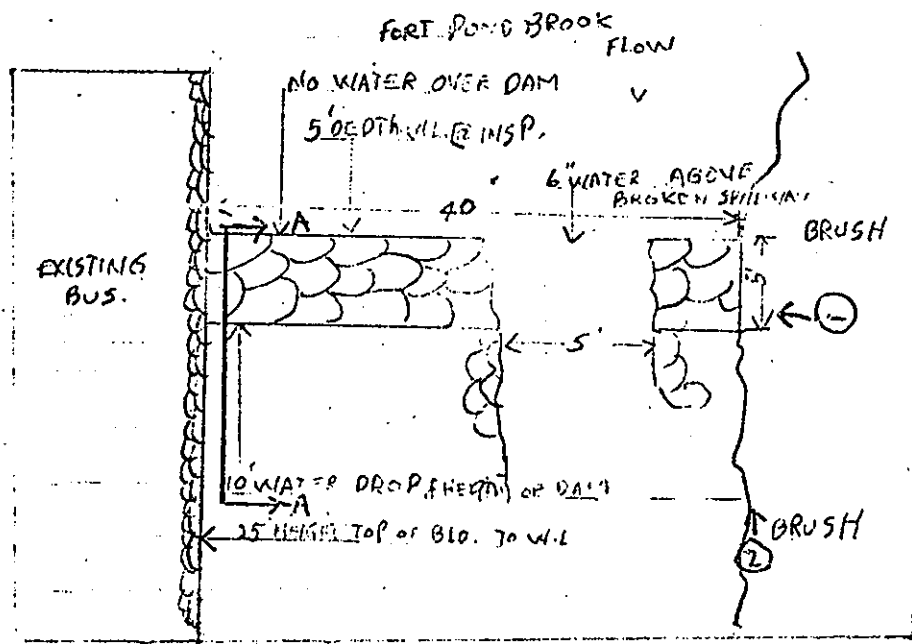 FORT POND BROOK
FLOW
NO WATER OVER DAM
5' DEPTH W.L. @ INSP.
6" WATER ABOVE
BROKEN SPILLWAY
A
40
BRUSH
EXISTING
BUS.
5'
1
5'
10' WATER DROP & HEIGHT OF DAM
A
25' HEIGHT TOP OF BLD. TO W.L
BRUSH
2